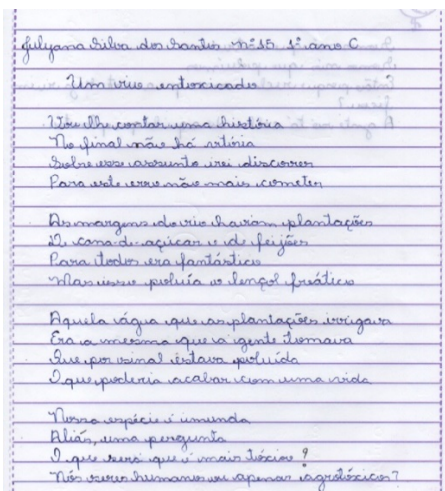 Julyana Silva dos Santos nº15 1º ano C
Um rio entoxicado
Vou lhe contar uma história
No final não há vitória
Sobre esse assunto irei discorrer
Para este erro não mais cometer
As margens do rio haviam plantações
De cana-de-açúcar e de feijões
Para todos era fantástico
Mas isso poluía o lençol freático
Aquela água que as plantações irrigava
Era a mesma que a gente tomava
Que por sinal estava poluída
O que poderia acabar com uma vida
Nossa espécie é imunda
Aliás, uma pergunta
O que será que é mais tóxico?
Nós seres humanos ou apenas agrotóxicos?